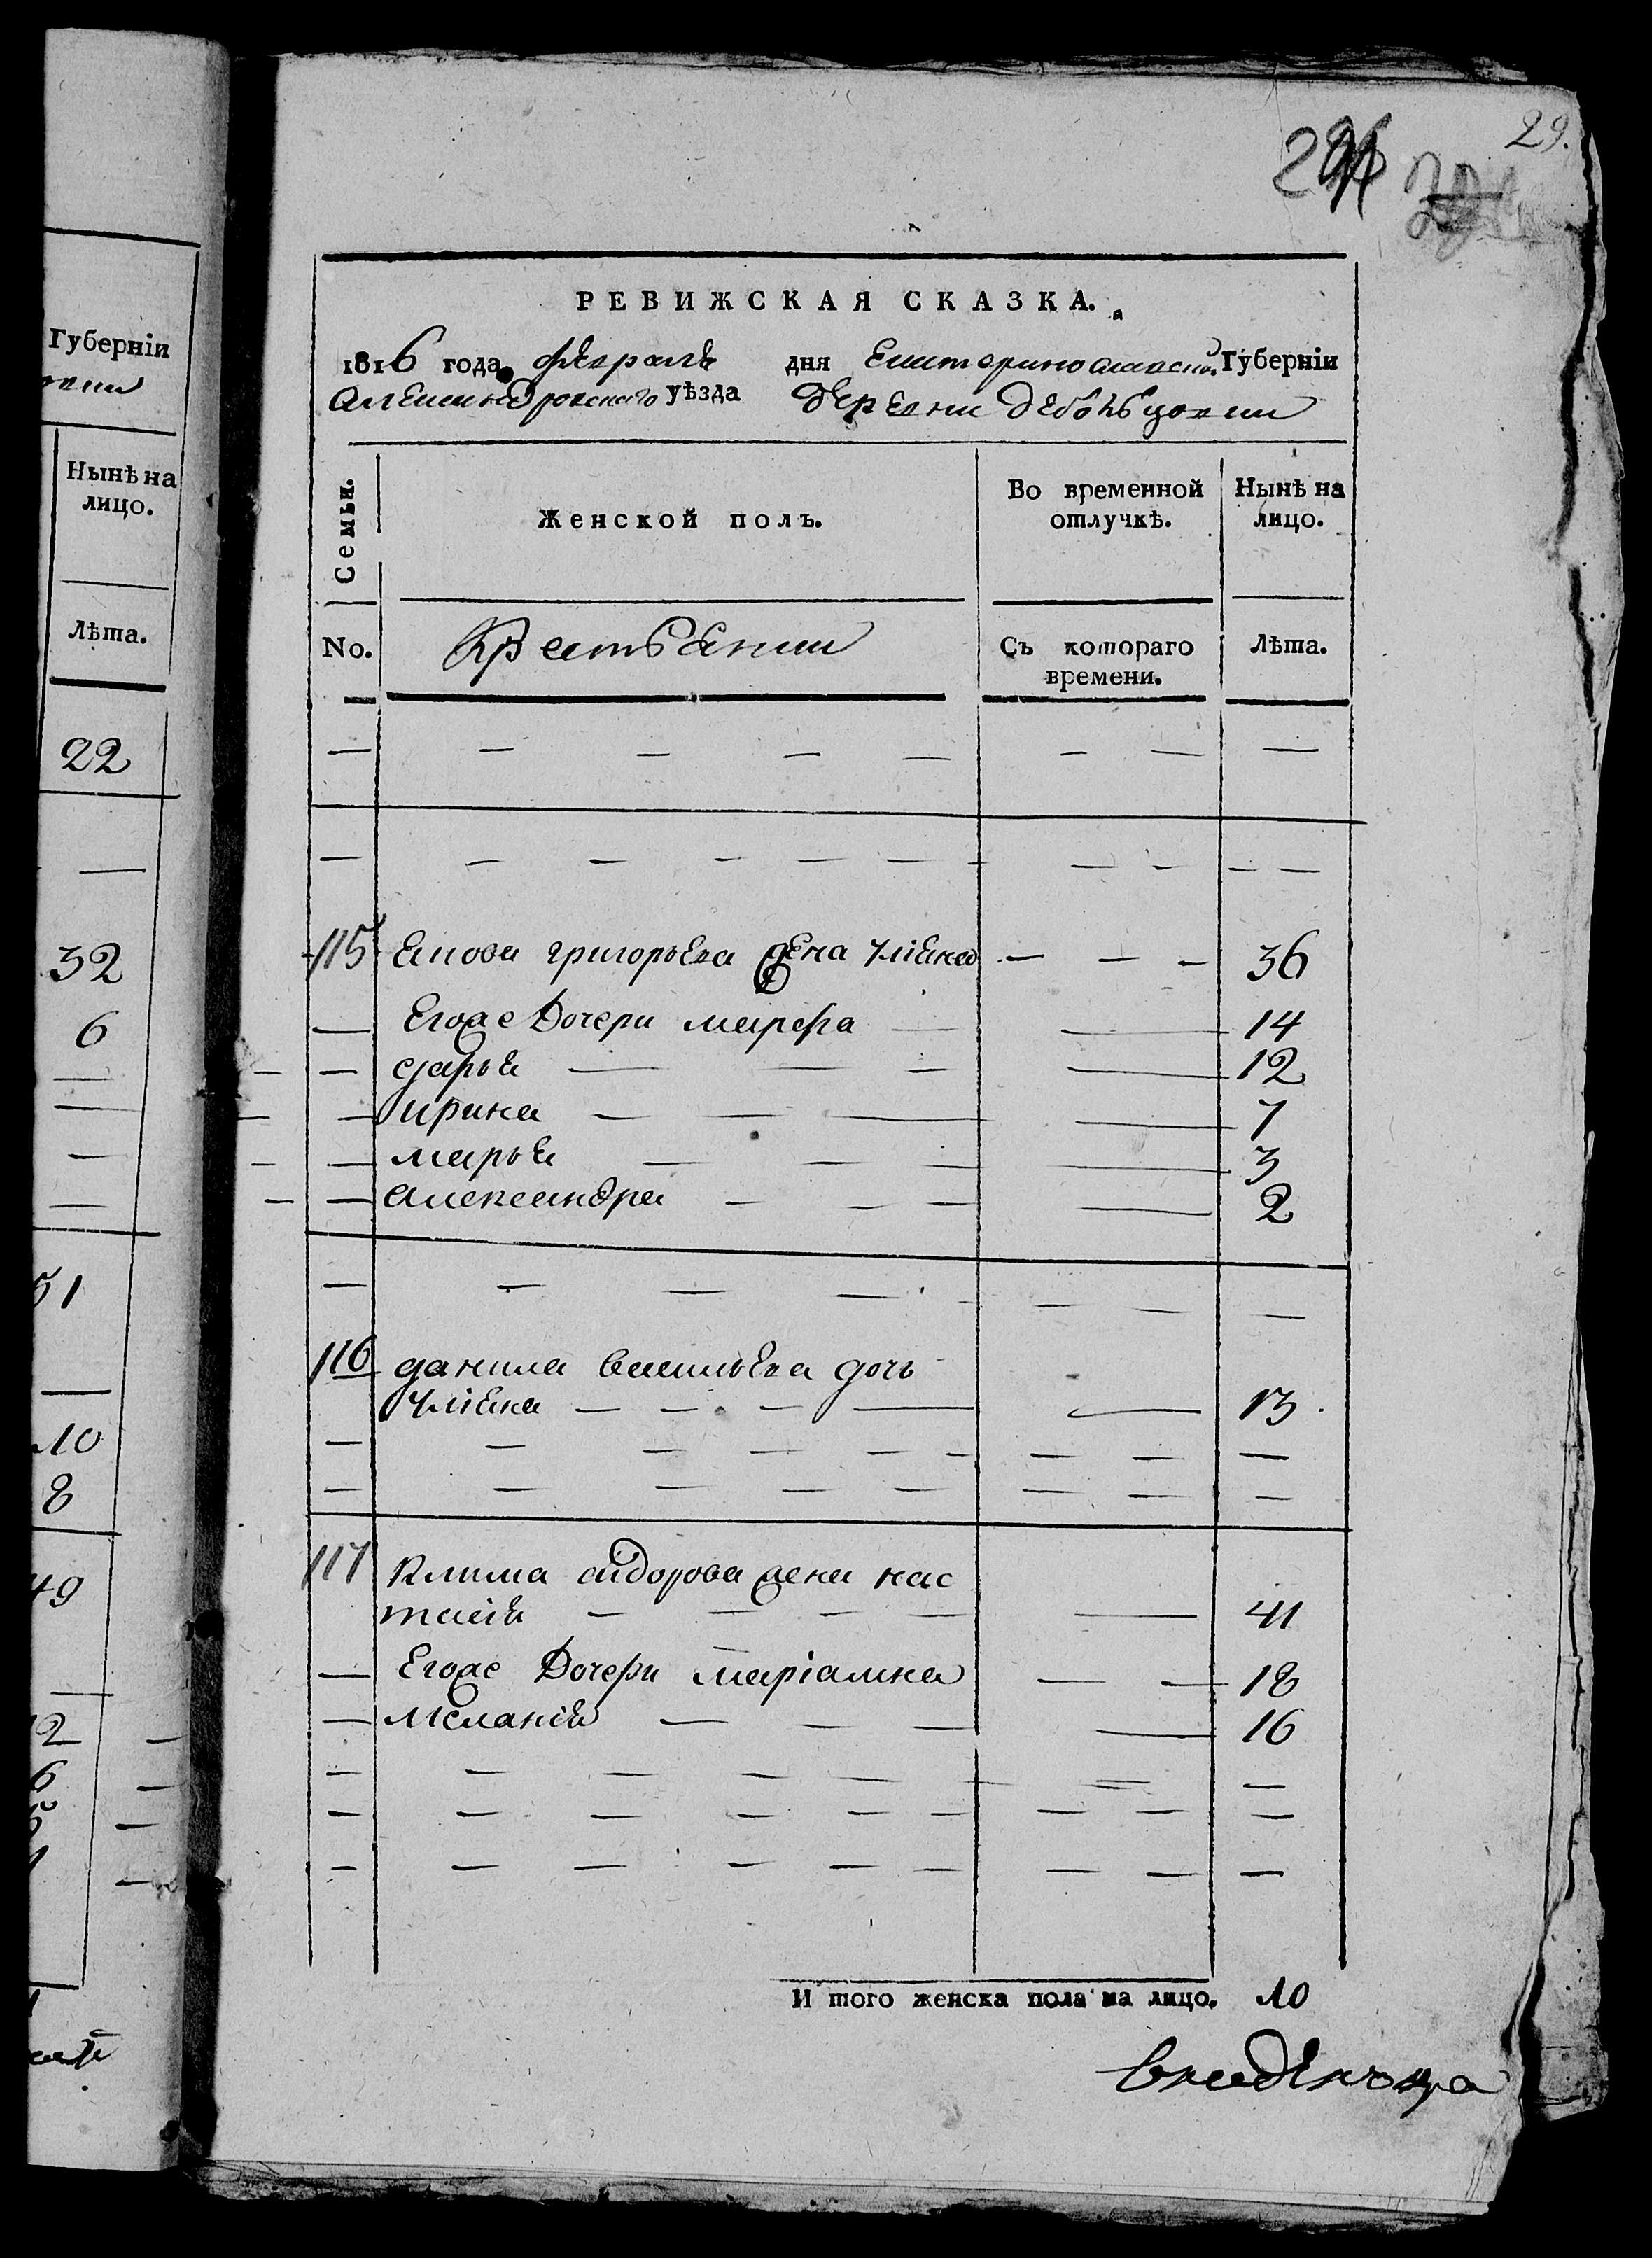 29.
РЕВИЖСКАЯ СКАЗКА.
1816 года февраля дня Екатеринославской Губерніи
Александровскаго уѣзда деревни
Семьи.
Женской полъ.
Во временной отлучкѣ.
Нынѣ на лицо.
No.
Крестьянии
Съ котораго времени.
Лѣта.
115 Якова григорьева жена улiяна 36
Егоже Дочери марфа 14
дарья 12
ирина 7
марья 3
александра 2
116 данила васильева дочь
улiяна 13
117 Клима сидорова жена нас
тасiя 41
Егоже Дочери марiамна 18
меланiя 16
И того женска пола на лицо. 10
Губерніи
Нынѣ на
лицо.
Лѣта.
22
32
6
51
10
8
49